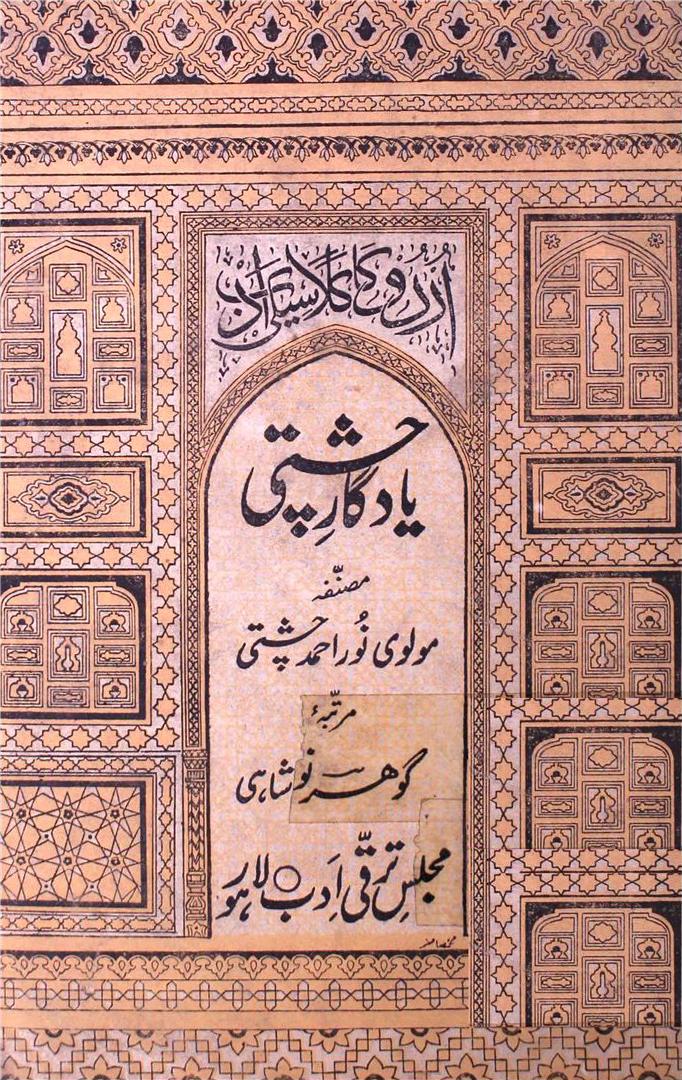 اُردو کا کلاسیکی ادب
یادگارِ چشتی
مصنّفہ
مولوی نُور احمد چشتی
مرتّبۂ
گوهر نوشاہی
مجلسِ ترقّی اَدب ○ لاہور